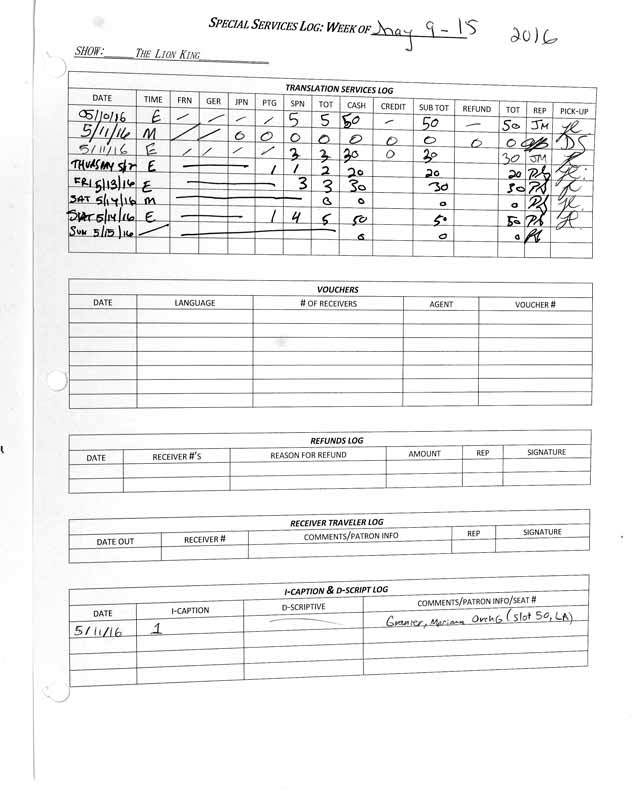 SPECIAL SERVICES LOG: WEEK OF May 9-15 2016
SHOW: THE LION KING
TRANSLATION SERVICES LOG
DATE TIME FRN GER JPN PTG SPN TOT CASH CREDIT SUB TOT REFUND TOT REP PICK-UP
05/10/16 E - - - - 5 5 50 - 50 - 50 JM
5/11/16 M / / 0 0 0 0 0 0 0 0 0 DS
5/11/16 E / / / / 3 3 30 0 30 30 JM
THURSAY 5/12 E 1 1 2 20 20 20 PB
FRI 5/13/16 E 3 3 30 30 30 PB
SAT 5/14/16 M 0 0 0 0 PB
SAT 5/14/16 E 1 4 5 50 50 50 PB
SUN 5/15/16 0 0 0 PB
VOUCHERS
DATE LANGUAGE # OF RECEIVERS AGENT VOUCHER #
REFUNDS LOG
DATE RECEIVER #'S REASON FOR REFUND AMOUNT REP SIGNATURE
RECEIVER TRAVELER LOG
DATE OUT RECEIVER # COMMENTS/PATRON INFO REP SIGNATURE
I-CAPTION & D-SCRIPT LOG
DATE I-CAPTION D-SCRIPTIVE COMMENTS/PATRON INFO/SEAT #
5/11/16 1 Granier, Mariana (slot 50, LA)